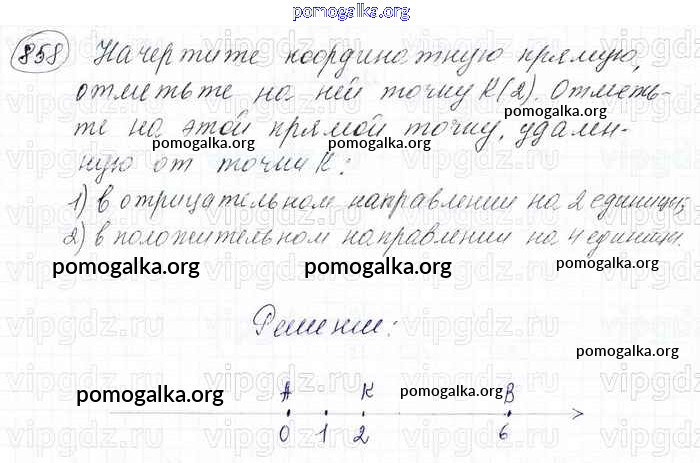 pomogalka.org
858 Начертите координатную прямую,
отметьте на ней точку K(2). Отметь-
pomogalka.org
те на этой прямой точку, удален-
pomogalka.org
ную от точки K:
1) в отрицательном направлении на 2 единицы;
2) в положительном направлении на 4 единицы.
pomogalka.org pomogalka.org pomogalka.org
vipgdz.ru
Решение:
pomogalka.org
A K B
pomogalka.org pomogalka.org
0 1 2 6